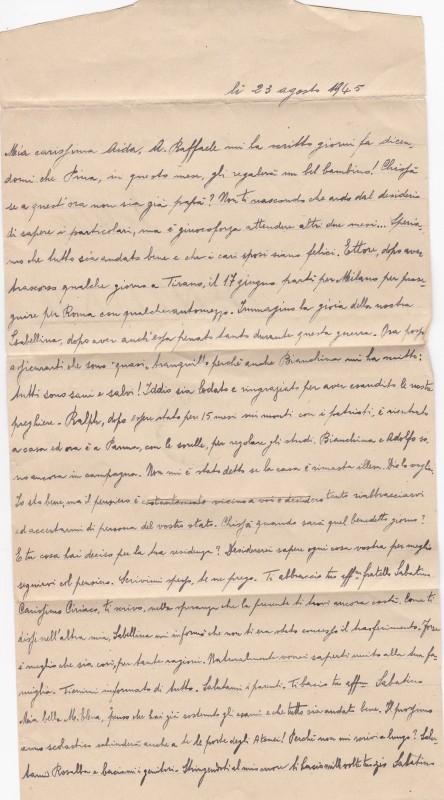 lì 23 agosto 1945
Mia carissima Aida, A. Raffaele mi ha scritto giorni fa dicen-
domi che Pina, in questo mese, gli regalerà un bel bambino! Chissà
se a quest'ora non sia già papà? Non ti nascondo che ardo dal desiderio
di sapere i particolari, ma è giuocoforza attendere altri due mesi... Speria-
mo che tutto sia andato bene e che i cari sposi siano felici. Ettore, dopo aver
trascorso qualche giorno a Tirano, il 17 giugno partì per Milano per prose-
guire per Roma con qualche automezzo. Immagino la gioia della nostra
Isabellina, dopo aver anch'essa penato tanto durante questa guerra. Ora posso
assicurarti che sono "quasi" tranquillo perché anche Bianchina mi ha scritto:
tutti sono sani e salvi! Iddio sia lodato e ringraziato per aver esaudito le nostre
preghiere. Ralph, dopo essere stato per 15 mesi sui monti con i patrioti, è rientrato
a casa ed ora è a Parma, con le sorelle, per regolare gli studi. Bianchina e Adolfo so-
no ancora in campagna. Non mi è stato detto se la casa è rimasta illesa. Dio lo voglia.
Io sto bene, ma il pensiero è costantemente vicino a voi e desidero tanto riabbracciarvi
ed accertarmi di persona del vostro stato. Chissà quando sarà quel benedetto giorno?
E tu cosa hai deciso per la tua residenza? Desidererei sapere ogni cosa vostra per meglio
seguirvi col pensiero. Scrivimi spesso, te ne prego. Ti abbraccio tuo aff.mo fratello Sabatino
Carissimo Ciriaco, ti scrivo, nella speranza che la presente ti trovi ancora costì. Come ti
dissi nell'altra mia, Isabellina mi informò che non ti era stato concesso il trasferimento. Forse
è meglio che sia così, per tante ragioni. Naturalmente vorrei saperti unito alla tua fa-
miglia. Tienimi informato di tutto. Salutami i parenti. Ti bacio tuo aff.mo Sabatino
Mia bella penso che hai già sostenuto gli esami e che tutto sia andato bene. Il prossimo
anno scolastico schiuderà anche a te le porte degli Atenei! Perché non mi scrivi a lungo? Salu-
tami Rosalba e baciami i genitori. Stringendoti al mio cuore ti bacio mille volte tuo zio Sabatino